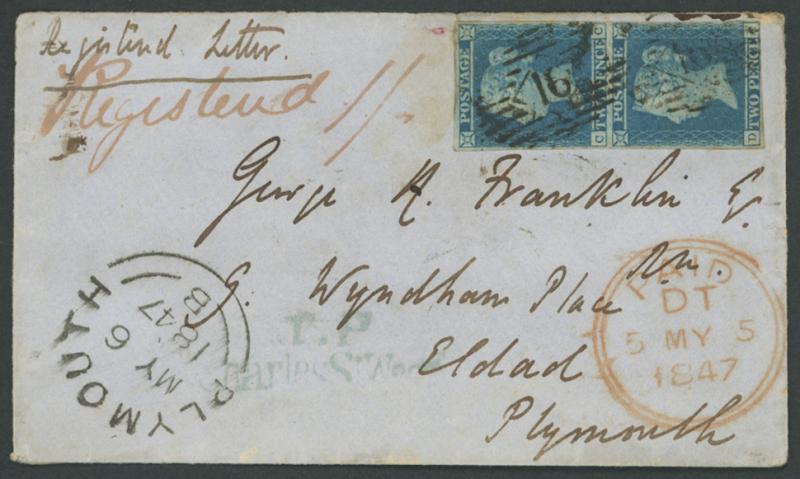 Registered Letter.
Registered 1/.
POSTAGE TWO PENCE C C
POSTAGE TWO PENCE D
16
George H. Franklin
Wyndham Place
Eldad
Plymouth
PAID
DT
5 MY 5
1847
PLYMOUTH
MY 6
1847
B
T.P
Charles St